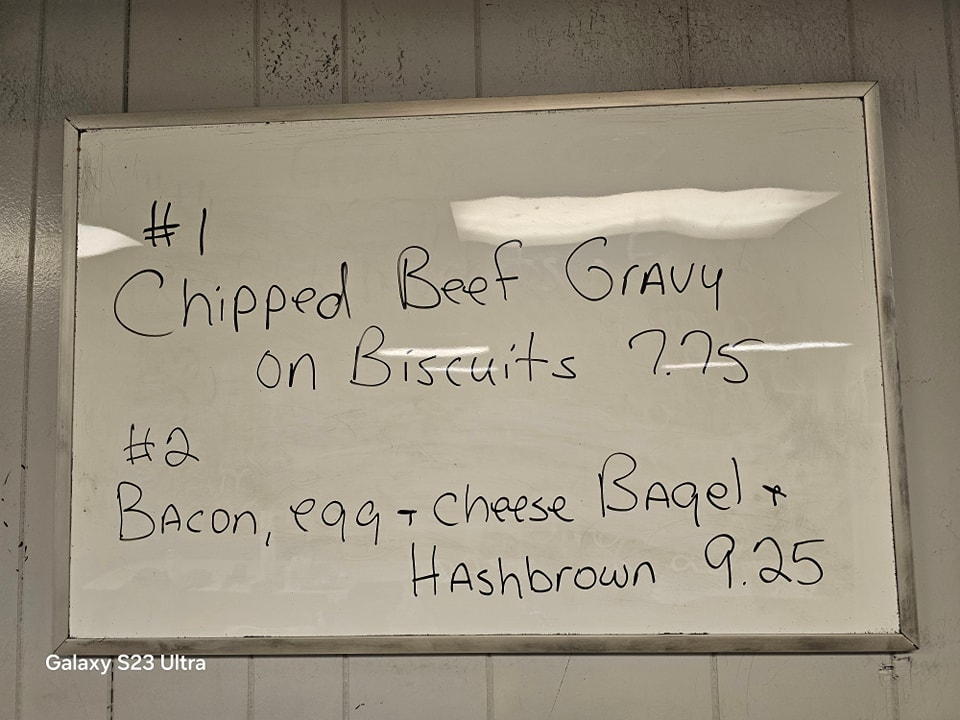 #1
Chipped Beef Gravy
on Biscuits 7.75
#2
Bacon, egg + cheese Bagel +
Hashbrown 9.25
Galaxy S23 Ultra